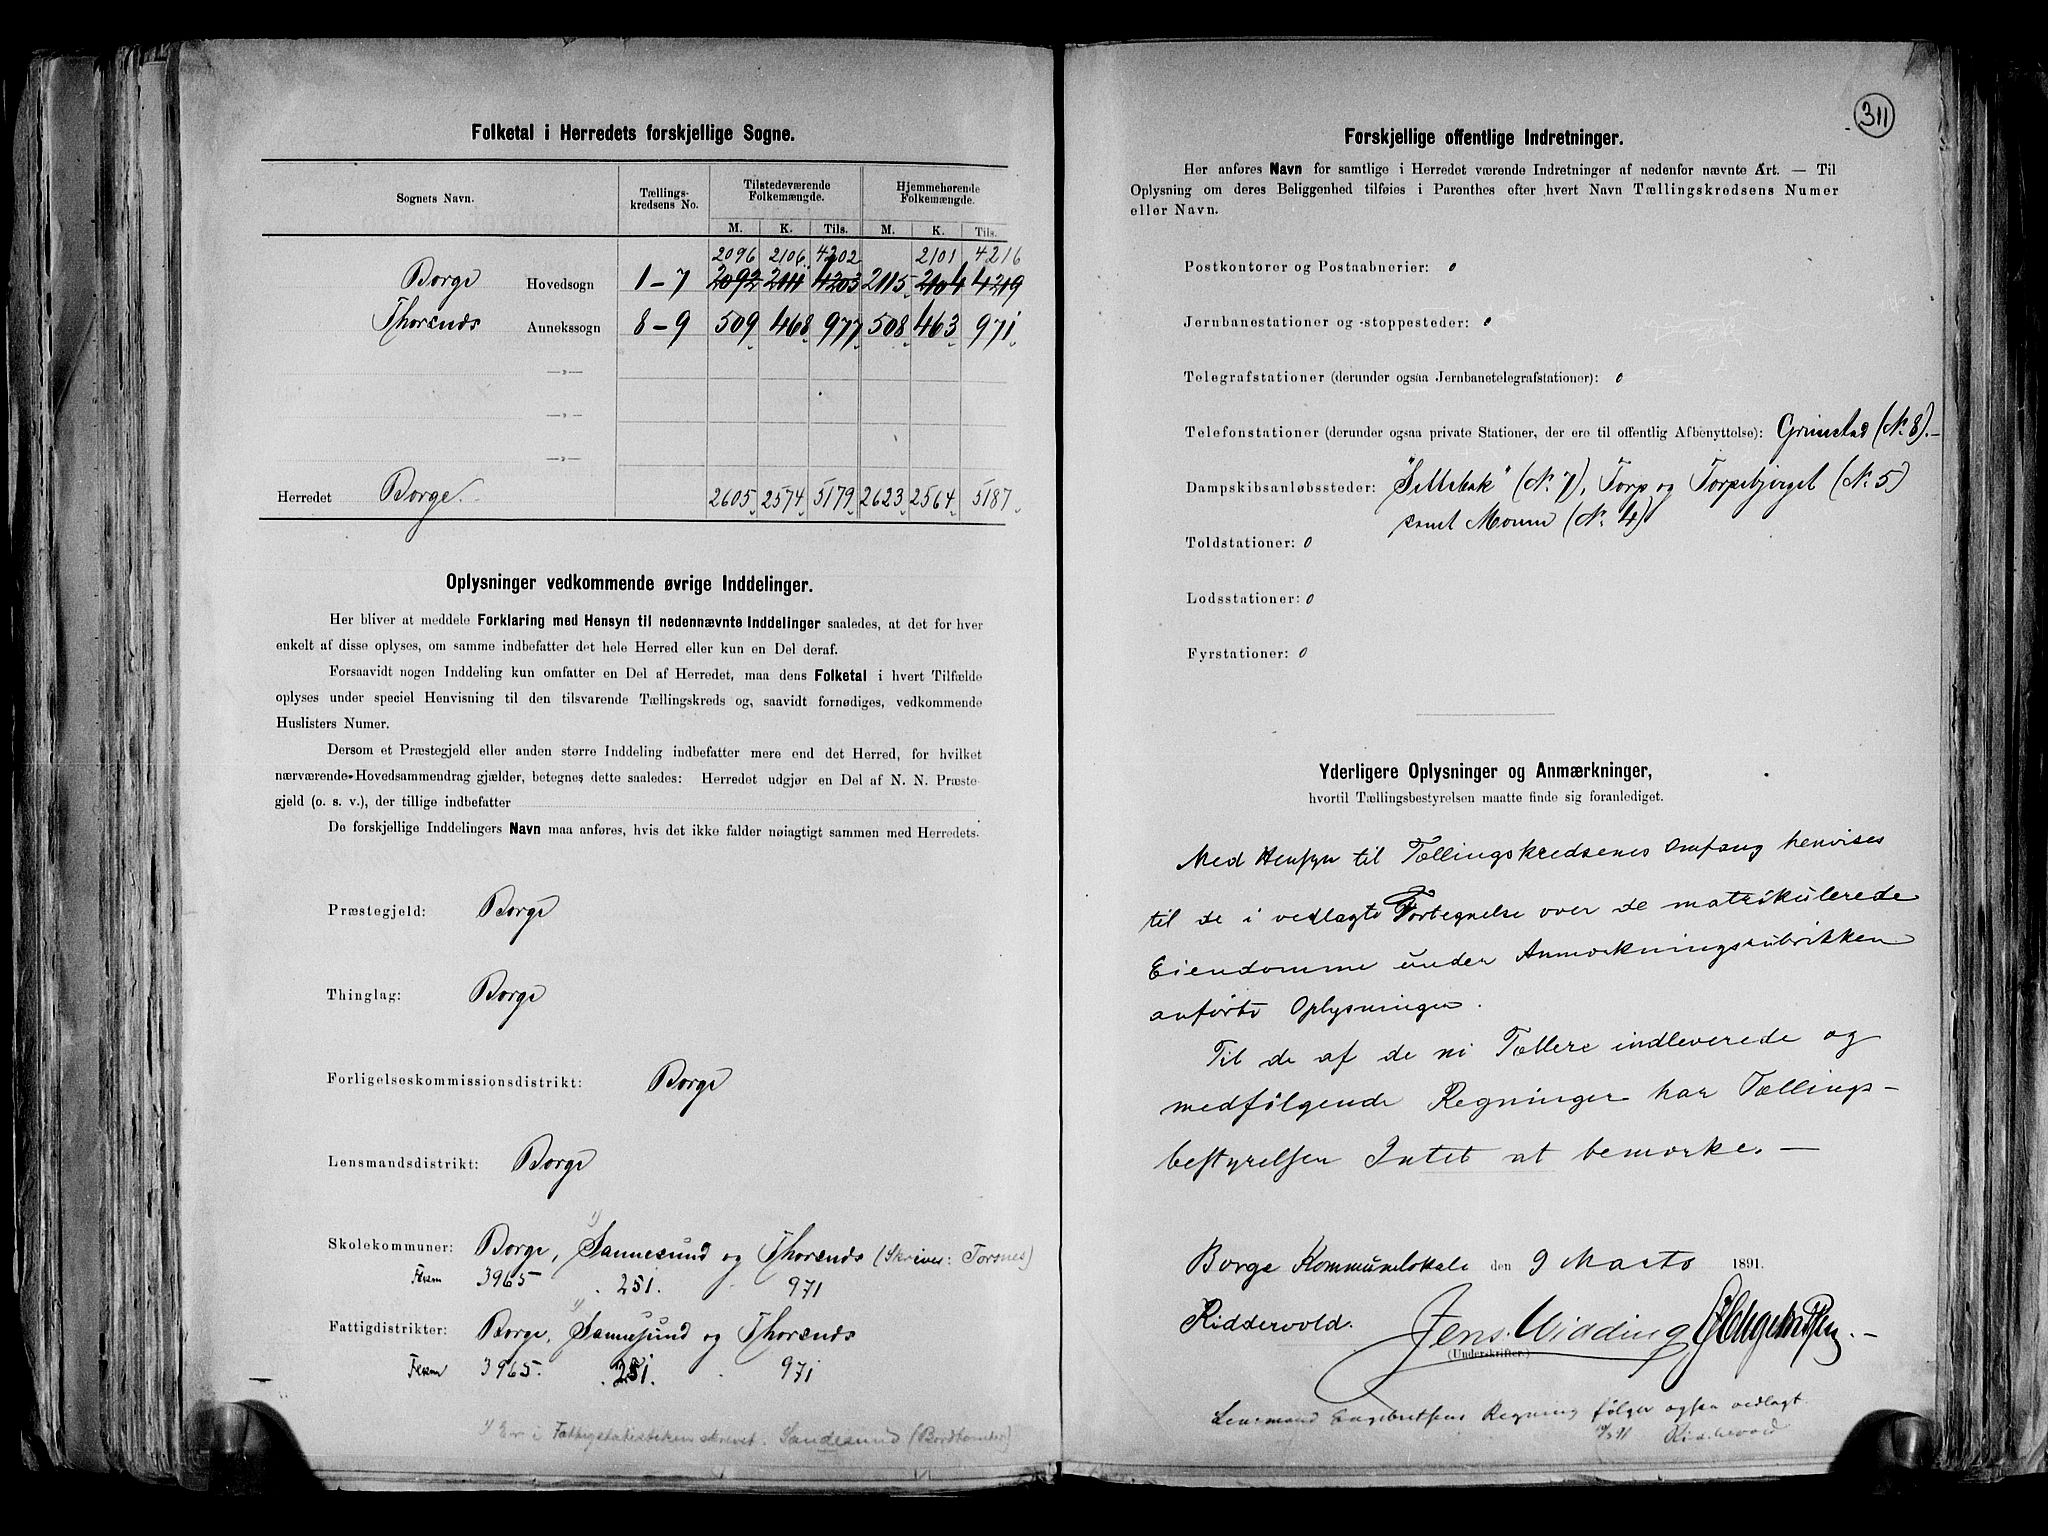 Folketal i Herredets forskjellige Sogne.
Sognets Navn. Tællings-kredsens No. Tilstedeværende Folkemængde. Hjemmehørende Folkemængde.
M. K. Tils. M. K. Tils.
2096 2106 4202 2101 4216
Borge Hovedsogn 1-7 2092 2111 4203 2115 2104 4219
Thorsnæs Annekssogn 8-9 509 468 977 508 463 971
—»—
—»—
—»—
Herredet Borge. 2605 2574 5179 2623 2564 5187
Oplysninger vedkommende øvrige Inddelinger.
Her bliver at meddele Forklaring med Hensyn til nedennævnte Inddelinger saaledes, at det for hver
enkelt af disse oplyses, om samme indbefatter det hele Herred eller kun en Del deraf.
Forsaavidt nogen Inddeling kun omfatter en Del af Herredet, maa dens Folketal i hvert Tilfælde
oplyses under speciel Henvisning til den tilsvarende Tællingskreds og, saavidt fornødiges, vedkommende
Huslisters Numer.
Dersom et Præstegjeld eller anden større Inddeling indbefatter mere end det Herred, for hvilket
nærværende Hovedsammendrag gjælder, betegnes dette saaledes: Herredet udgjør en Del af N. N. Præste-
gjeld (o. s. v.), der tillige indbefatter
De forskjellige Inddelingers Navn maa anføres, hvis det ikke falder nøiagtigt sammen med Herredets.
Præstegjeld: Borge
Thinglag: Borge
Forligelseskommissionsdistrikt: Borge
Lensmandsdistrikt: Borge
1)
Skolekommuner: Borge, Sannesund og Thorsnæs (Skrives: Torsnes)
3965 251. 971
1)
Fattigdistrikter: Borge, Sannesund og Thorsnæs
3965. 251. 971
1) Er i Fattigstatistiken skrevet: Sandesund
311
Forskjellige offentlige Indretninger.
Her anføres Navn for samtlige i Herredet værende Indretninger af nedenfor nævnte Art. — Til
Oplysning om deres Beliggenhed tilføies i Parenthes efter hvert Navn Tællingskredsens Numer
eller Navn.
Postkontorer og Postaabnerier: 0
Jernbanestationer og -stoppesteder: 0
Telegrafstationer (derunder ogsaa Jernbanetelegrafstationer): 0
Telefonstationer (derunder ogsaa private Stationer, der ere til offentlig Afbenyttelse): Grimstad (N. 8).—
Dampskibsanløbssteder: "Sellebak" (N. 7), Torp og Torpebjerget (N. 5)
samt Moum (N. 4)
Toldstationer: 0
Lodsstationer: 0
Fyrstationer: 0
Yderligere Oplysninger og Anmærkninger,
hvortil Tællingsbestyrelsen maatte finde sig foranlediget.
Med Hensyn til Tællingskredsenes Omfang henvises
til de i vedlagte Fortegnelse over de matrikulerede
Eiendomme under Anmærkningsrubrikken
anførte Oplysninger.
Til de af de ni Tællere indleverede og
medfølgende Regninger har Tællings-
bestyrelsen Intet at bemærke.—
Borge Kommunelokale den 9 Marts 1891.
Riddervold. Jens. Widding
(Underskrifter.)
Lensmand Engebretsens Regning følger ogsaa vedlagt.
Riddervold